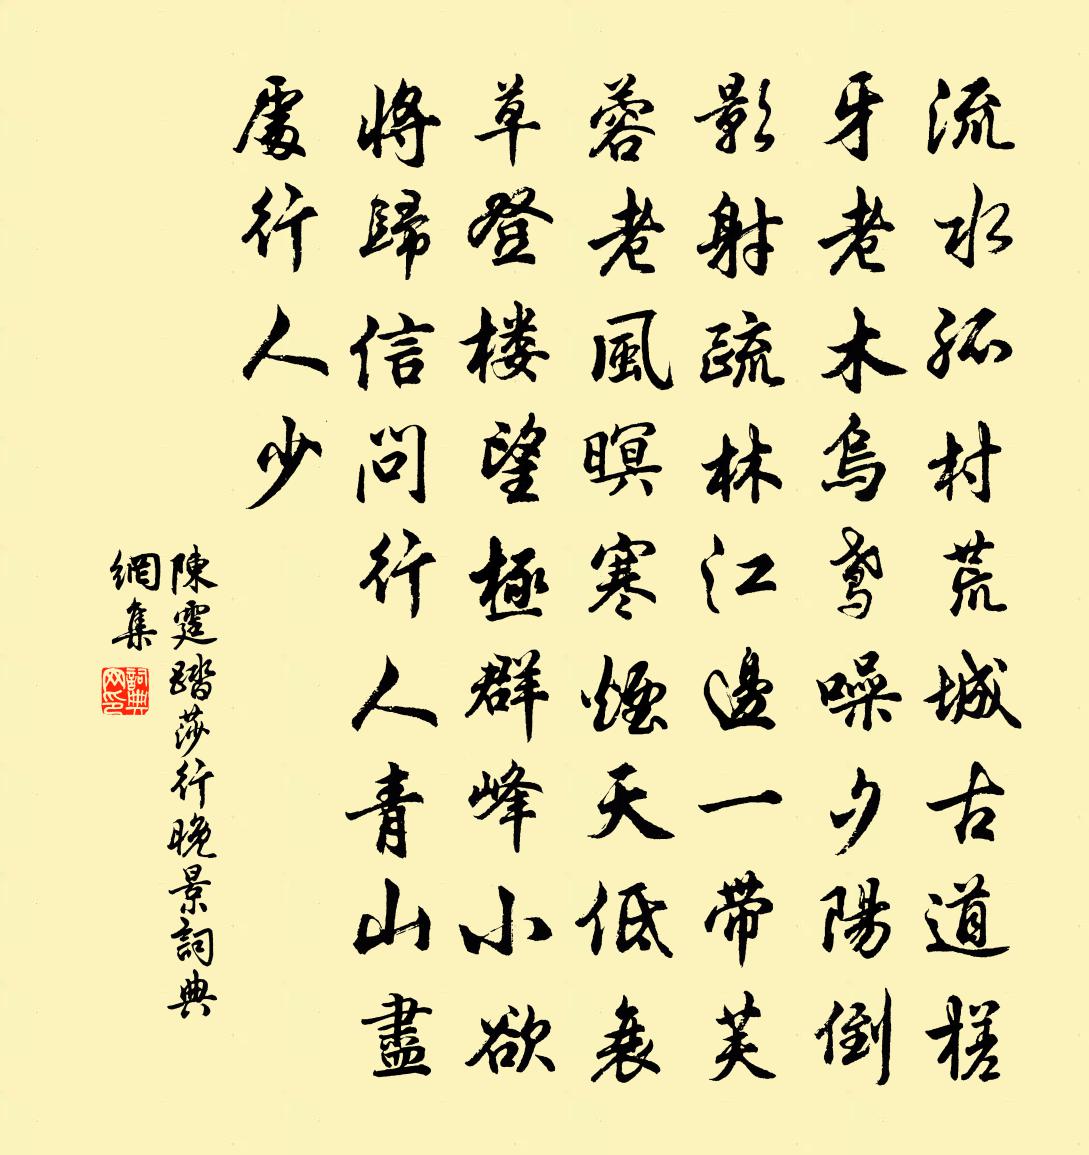 流水孤村荒城古道槎
牙老木烏鳶噪夕陽倒
影射疏林江邊一帶芙
蓉老風暝寒煙天低衰
草登楼望極群峰小欲
將歸信問行人青山盡
處行人少
陳霆踏莎行晚景詞典
網集
詞典
网印